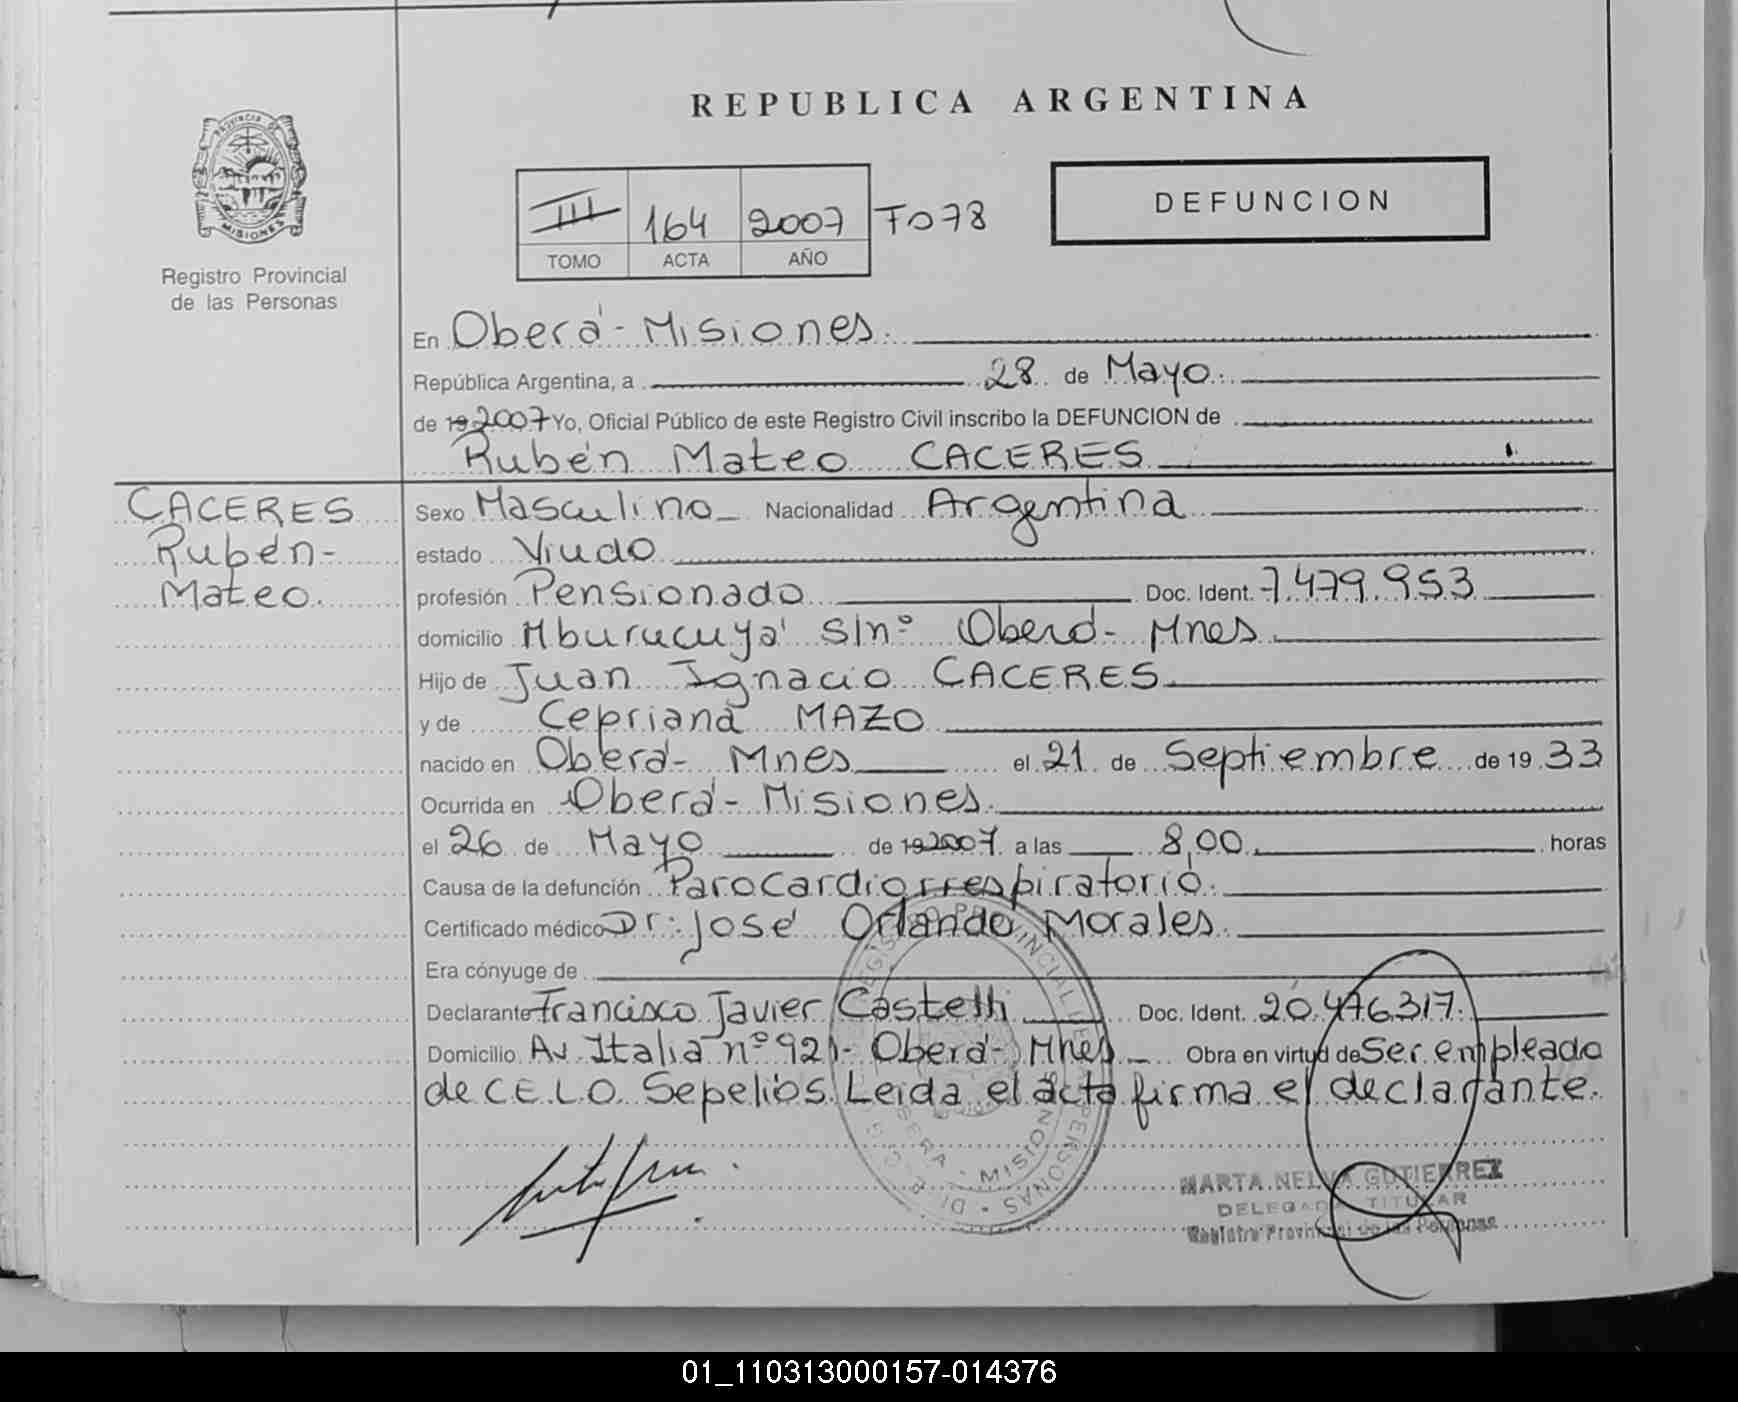 REPUBLICA ARGENTINA
PROVINCIA DE
MISIONES
Registro Provincial
de las Personas
III 164 2007 Fo 78
TOMO ACTA AÑO
DEFUNCION
En Oberá - Misiones.
República Argentina, a 28 de Mayo.
de 19 2007 Yo, Oficial Público de este Registro Civil inscribo la DEFUNCION de
Rubén Mateo CACERES
CACERES
Rubén-
Mateo.
Sexo Masculino Nacionalidad Argentina
estado Viudo
profesión Pensionado Doc. Ident. 7.479.953
domicilio Mburucuyá S/nº Oberá- Mnes
Hijo de Juan Ignacio CACERES
y de Cepriana MAZO
nacido en Oberá- Mnes el 21 de Septiembre de 19 33
Ocurrida en Oberá- Misiones.
el 26 de Mayo de 19 2007 a las 8,00 horas
Causa de la defunción Parocardiorrespiratorio.
Certificado médico Dr: José Orlando Morales.
Era cónyuge de
Declarante Francisco Javier Castelli Doc. Ident. 20.476.317.
Domicilio Av. Italia nº 921- Oberá- Mnes Obra en virtud de Ser empleado
de C.E.L.O. Sepelios. Leida el acta firma el declarante.
MARTA NELVA GUTIERREZ
DELEGADA TITULAR
Registro Provincial de las Personas
01_110313000157-014376